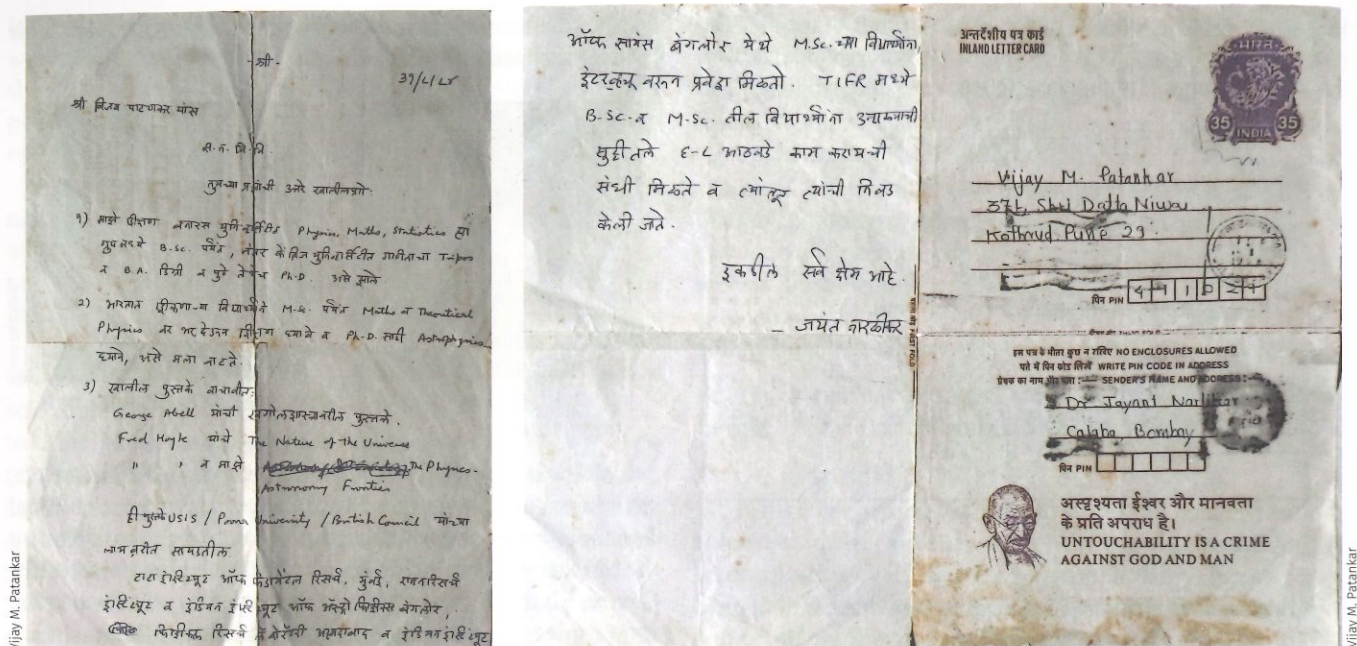 - श्री -
३१/८/८४
श्री विजय पाटणकर यांस
स. न. वि. वि.
तुमच्या प्रश्नांची उत्तरे खालीलप्रमाणे:
१) माझे शिक्षण बनारस युनिव्हर्सिटीत Physics, Maths, Statistics ह्या
ग्रुपमध्ये B.Sc. पर्यंत, नंतर केंब्रिज युनिव्हर्सिटीत गणिताचा Tripos
व B.A. डिग्री व पुढे तेथेच Ph.D. असे झाले.
२) भारतात शिकणाऱ्या विद्यार्थ्याने M.Sc. पर्यंत Maths व Theoretical
Physics वर भर देऊन शिक्षण घ्यावे व Ph.D. साठी Astrophysics
घ्यावे, असे मला वाटते.
३) खालील पुस्तके वाचावीत:
George Abell यांची खगोलशास्त्रावरील पुस्तके.
Fred Hoyle यांचे The Nature of the Universe
" " व माझे The Physics-
Astronomy Frontier
ही पुस्तके USIS / Poona University / British Council यांच्या
लायब्ररीत सापडतील
टाटा इंस्टिट्यूट ऑफ फंडामेंटल रिसर्च, मुंबई, रामन रिसर्च
इंस्टिट्यूट व इंडियन इंस्टिट्यूट ऑफ अॅस्ट्रोफिजीक्स बंगलोर,
फिजीकल रिसर्च लॅबोरेटरी अहमदाबाद व इंडियन इंस्टिट्यूट
ऑफ सायंस बंगलोर येथे M.Sc. च्या विद्यार्थ्यांना
इंटरव्ह्यू वरून प्रवेश मिळतो. TIFR मध्ये
B.Sc. व M.Sc. तील विद्यार्थ्यांना उन्हाळ्याची
सुट्टीतले ६-८ आठवडे काम करायची
संधी मिळते व त्यांतून त्यांची निवड
केली जाते.
इकडील सर्व क्षेम आहे.
- जयंत नारळीकर
अन्तर्देशीय पत्र कार्ड
INLAND LETTER CARD
भारत
35 INDIA 35
Vijay M. Patankar
Shri Datta Niwas
Kothrud Pune 29.
पिन PIN
इस पत्र के भीतर कुछ न रखिए NO ENCLOSURES ALLOWED
पते में पिन कोड लिखें WRITE PIN CODE IN ADDRESS
प्रेषक का नाम और पता :— SENDER'S NAME AND ADDRESS :—
Dr Jayant Narlikar
Colaba, Bombay
पिन PIN
अस्पृश्यता ईश्वर और मानवता
के प्रति अपराध है।
UNTOUCHABILITY IS A CRIME
AGAINST GOD AND MAN
Vijay M. Patankar
Vijay M. Patankar